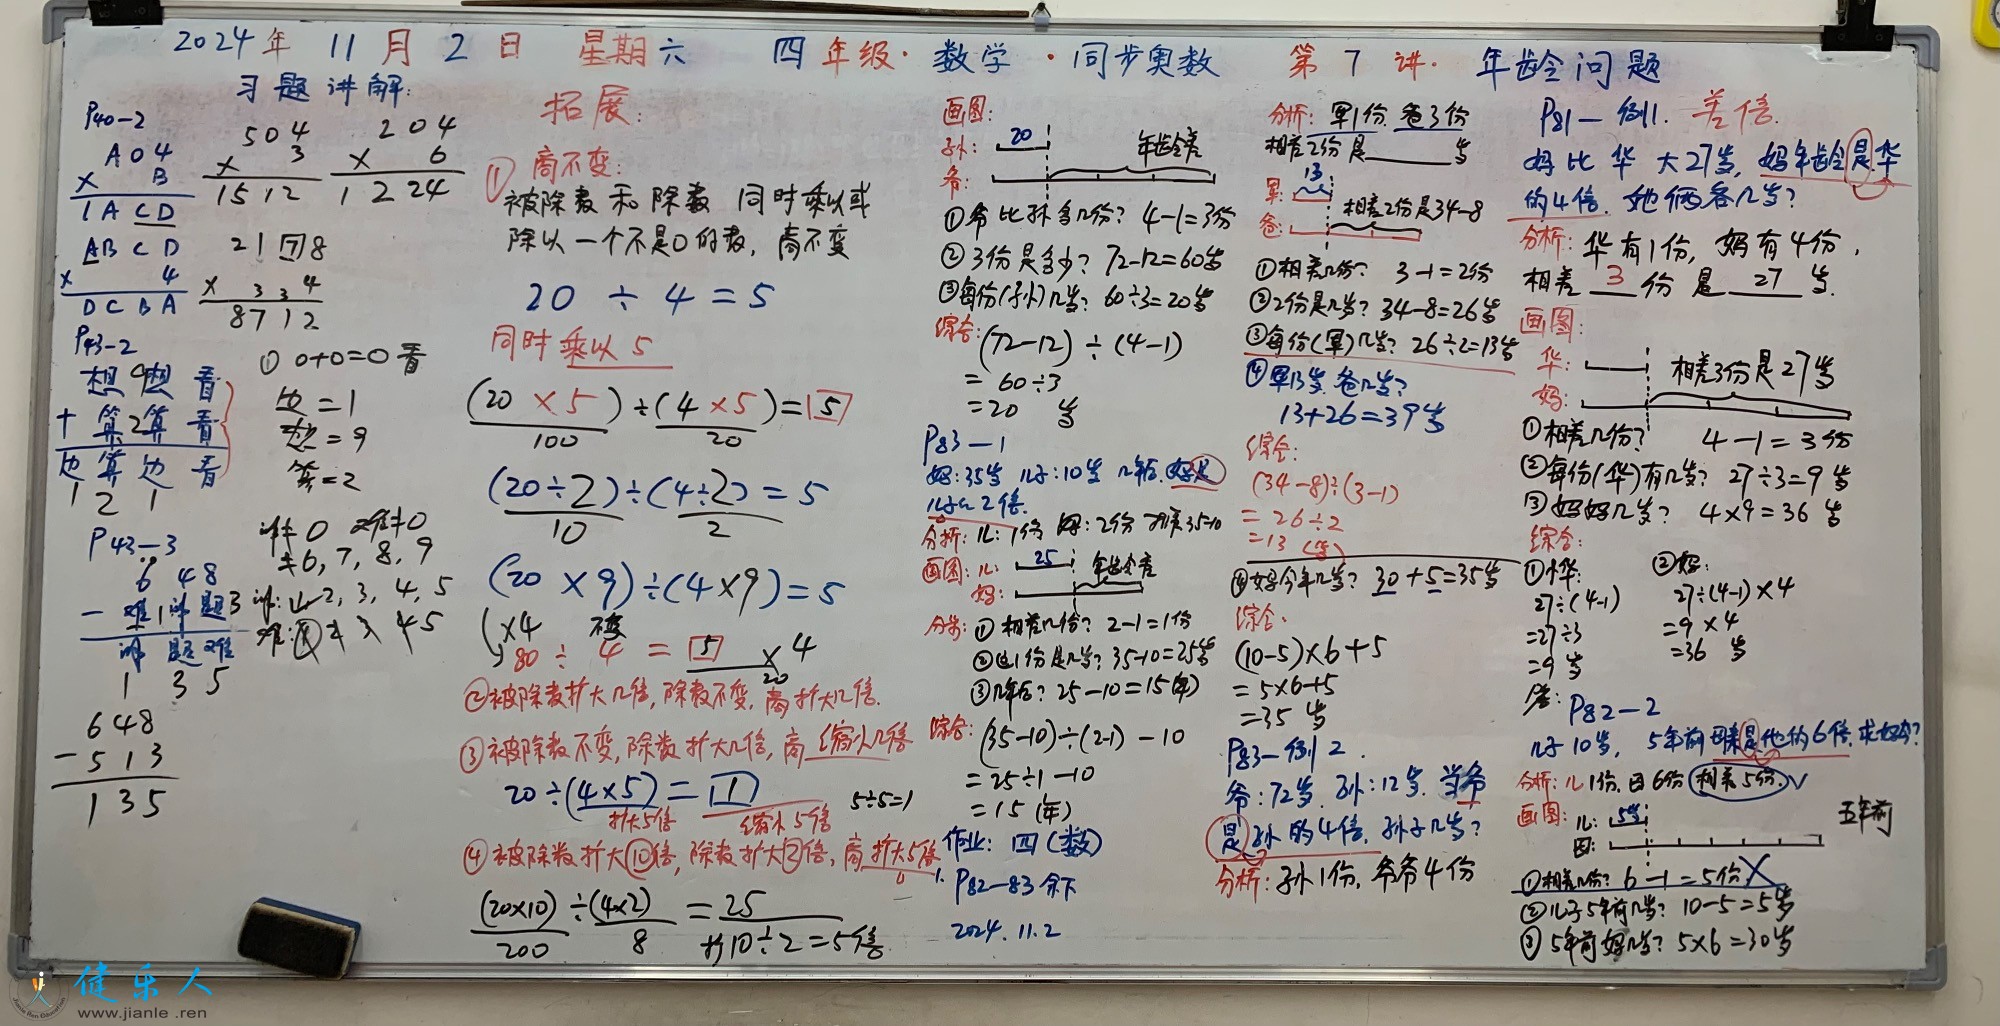 2024年 11月2日 星期六 四年级·数学·同步奥数 第7讲·年龄问题
习题讲解:
P40-2
A04
× B
1ACD
504
× 3
1512
204
× 6
1224
ABCD
× 4
DCBA
2178
× 4
8712
P43-2
想想看
+ 算算看
边算边看
1 2 1
① 0+0=0 看
边=1
想=9
算=2
P43-3
648
- 难讲题
讲题难
1 3 5
≠6,7,8,9
648
- 513
135
拓展:
① 商不变:
被除数和除数 同时乘以或
除以一个不是0的数,商不变
20 ÷ 4 = 5
同时乘以5
(20×5)÷(4×5)=5
100 20
(20÷2)÷(4÷2)=5
10 2
(20×9)÷(4×9)=5
×4 不变
80 ÷ 4 = 5 ×4
20
②被除数扩大几倍,除数不变,商扩大几倍.
③被除数不变,除数扩大几倍,商缩小几倍
20÷(4×5)=1 5÷5=1
扩大5倍 缩小5倍
④被除数扩大10倍,除数扩大2倍,商扩大5倍
(20×10)÷(4×2)=25
200 8 扩10÷2=5倍
画图:
孙: 20
爷: 年龄差
①爷比孙多几份? 4-1=3份
②3份是多少? 72-12=60岁
③每份(孙)几岁? 60÷3=20岁
综合:
(72-12)÷(4-1)
=60÷3
=20 岁
P83-1
妈:35岁 儿子:10岁 几年后,妈是
儿子的2倍.
分析:儿:1份 妈:2份 相差35-10
画图:儿: 25
妈: 年龄差
①相差几份? 2-1=1份
②这1份是几岁? 35-10=25岁
③几年后? 25-10=15(年)
综合:(35-10)÷(2-1)-10
=25÷1-10
=15(年)
作业:四(数)
P82-83 余下
2024.11.2
分析: 军1份 爸3份
相差2份是 岁
13
军:
爸: 相差2份是34-8
①相差几份? 3-1=2份
②2份是几岁? 34-8=26岁
③每份(军)几岁? 26÷2=13岁
④军13岁,爸几岁?
13+26=39岁
综合:
(34-8)÷(3-1)
=26÷2
=13(岁)
④妈今年几岁? 30+5=35岁
综合:
(10-5)×6+5
=5×6+5
=35 岁
P83-例2.
爷:72岁,孙:12岁,当爷
是孙的4倍,孙子几岁?
分析:孙1份,爷爷4份
P81-例1. 差倍.
妈比华大27岁,妈年龄是华
的4倍,她俩各几岁?
分析:华有1份,妈有4份,
相差 3 份是 27 岁.
画图:
华:
妈: 相差3份是27岁
①相差几份? 4-1=3份
②每份(华)有几岁? 27÷3=9岁
③妈妈几岁? 4×9=36岁
综合:
①华:
27÷(4-1)
=27÷3
=9 岁
②妈:
27÷(4-1)×4
=9×4
=36 岁
答:
P82-2
儿子10岁, 5年前母亲是他的6倍,求妈今?
分析:儿1份,母6份 相差5份
画图:儿: 5岁 五年前
母:
①相差几份? 6-1=5份
②儿子5年前几岁? 10-5=5岁
③5年前妈几岁? 5×6=30岁
健乐人
www.jianle.ren